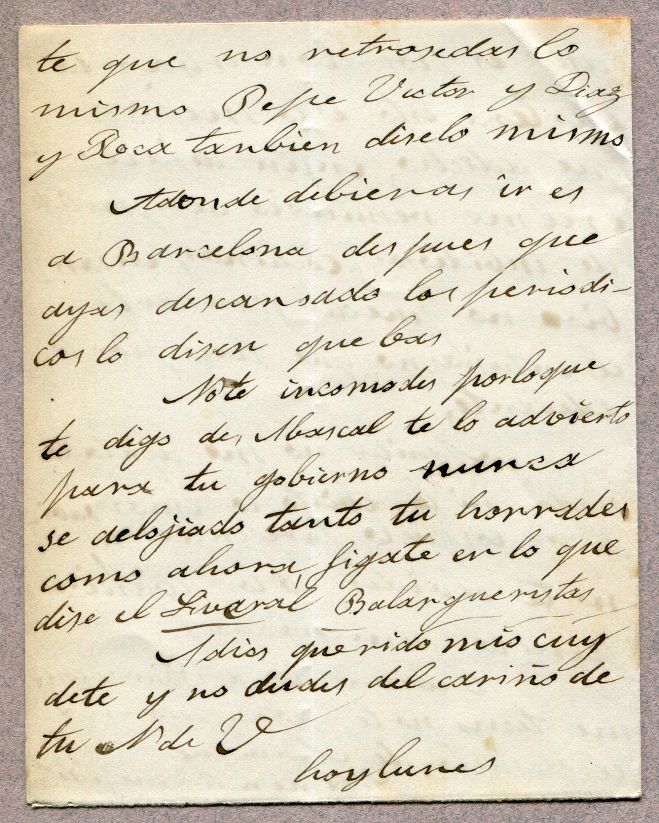 te que no retrosedas lo
mismo Pepe Victor y Diaz
y Roca tanbien diselo mismo
Adonde debieras ir es
a Barcelona des pues que
ayas descansado los periodi-
cos lo disen que bas
No te incomodes porloque
te digo des Abascal te lo advierto
para tu gobierno nunca
se delojiado tanto tu horrades
como ahora, figate en lo que
dise el Livaral Balargueristas
Adios querido mio cuy
dete y no dudes del cariño de
tu N de V
hoy lunes